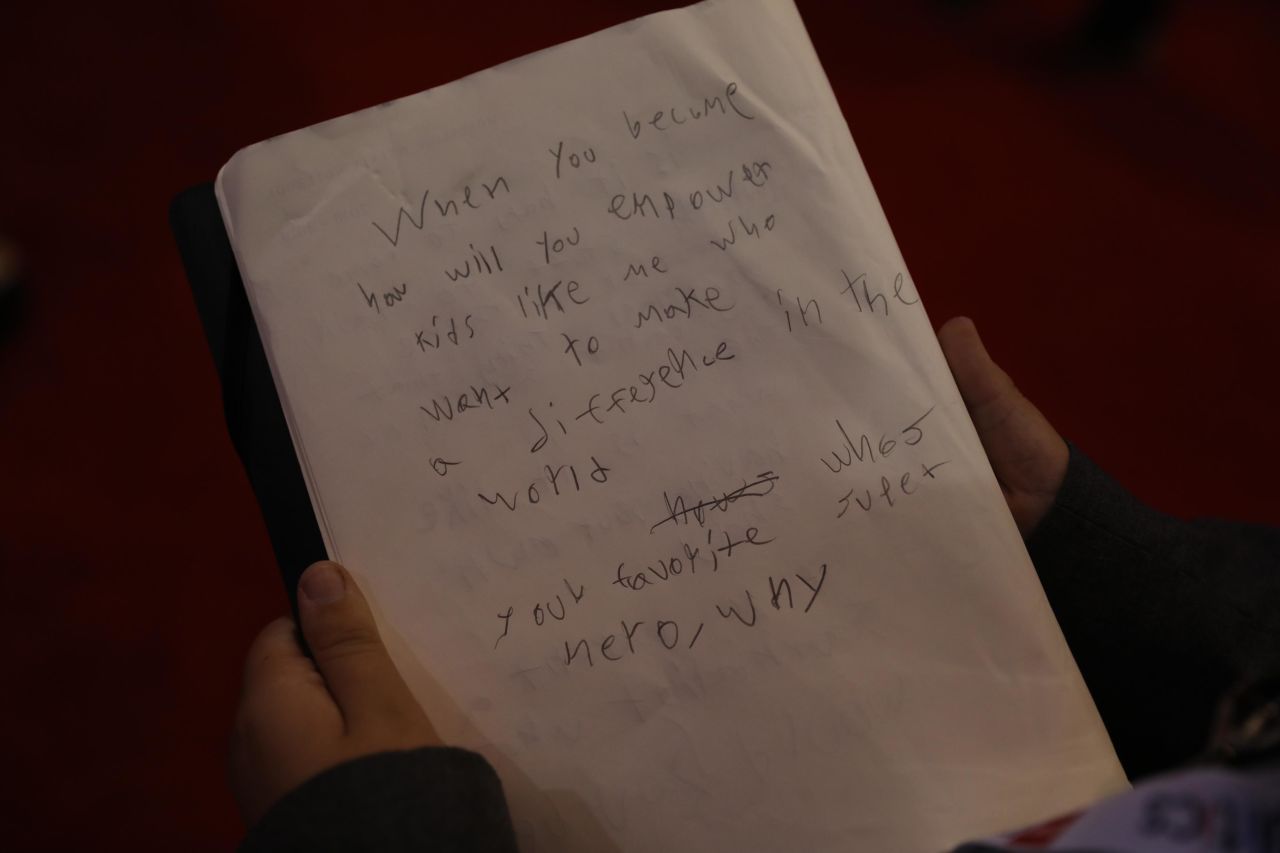 When you become
how will you empower
kids like me who
want to make
a difference in the
world
whos
your favorite super
hero, why